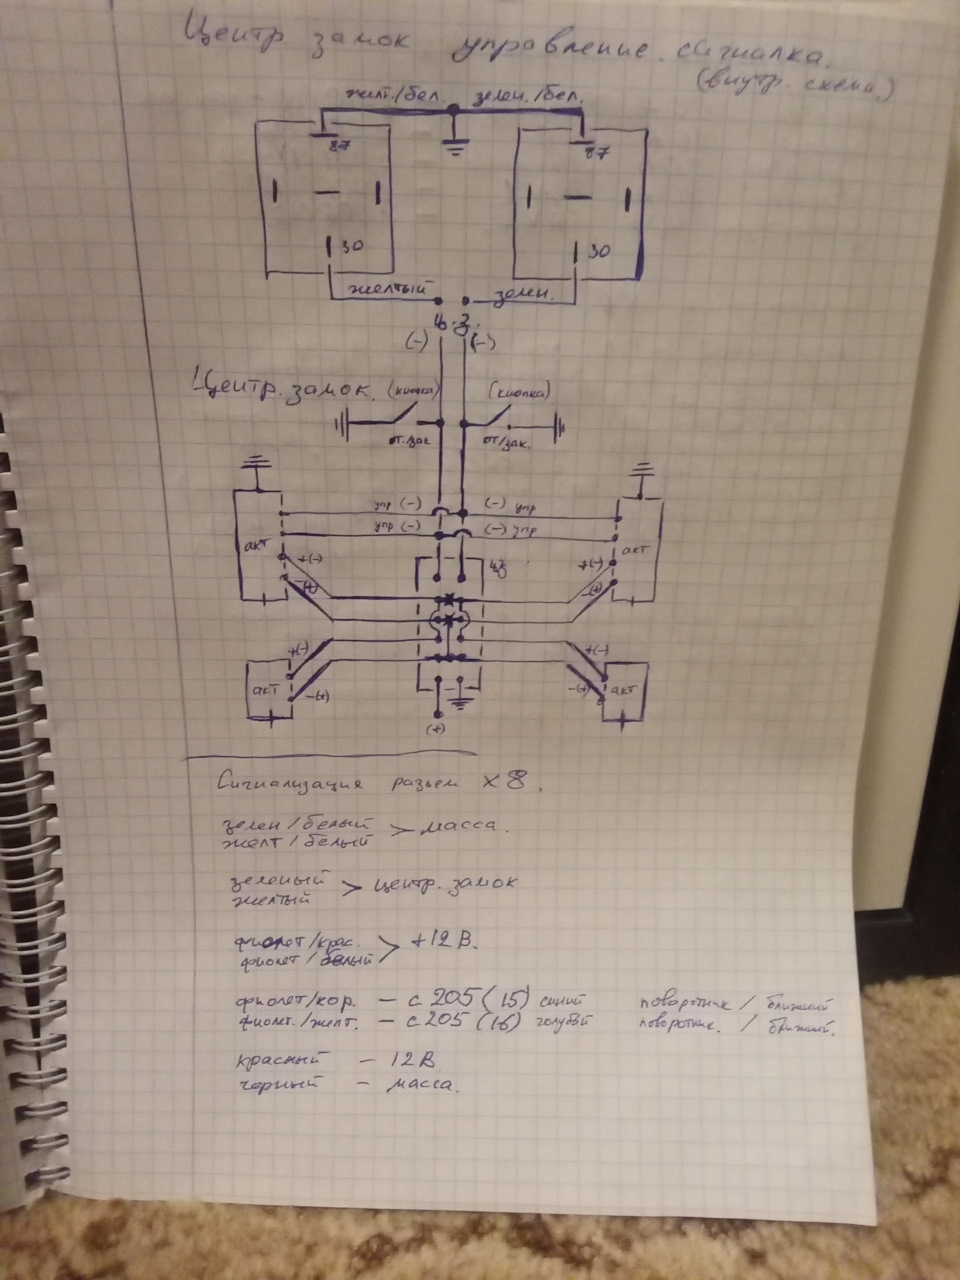 Центр. замок управление. сигналка.
(внутр. схема.)
желт./бел. зелен./бел.
87 87
30 30
желтый зелен.
ц. з.
(-) (-)
Центр. замок. (кнопка) (кнопка)
от./зак от/зак.
упр (-) (-) упр
упр (-) (-) упр
акт акт
+(-) цз +(-)
-(+) -(+)
+(-) +(-)
акт акт
-(+) -(+)
(+)
Сигнализация разьем х8.
зелен/белый
желт/белый > масса.
зеленый
желтый > центр. замок
фиолет/крас.
фиолет/белый > +12 В.
фиолет/кор. - с 205 (15) синий поворотник / ближний
фиолет./желт. - с 205 (16) голубой поворотник. / ближний.
красный - 12 В
черный - масса.